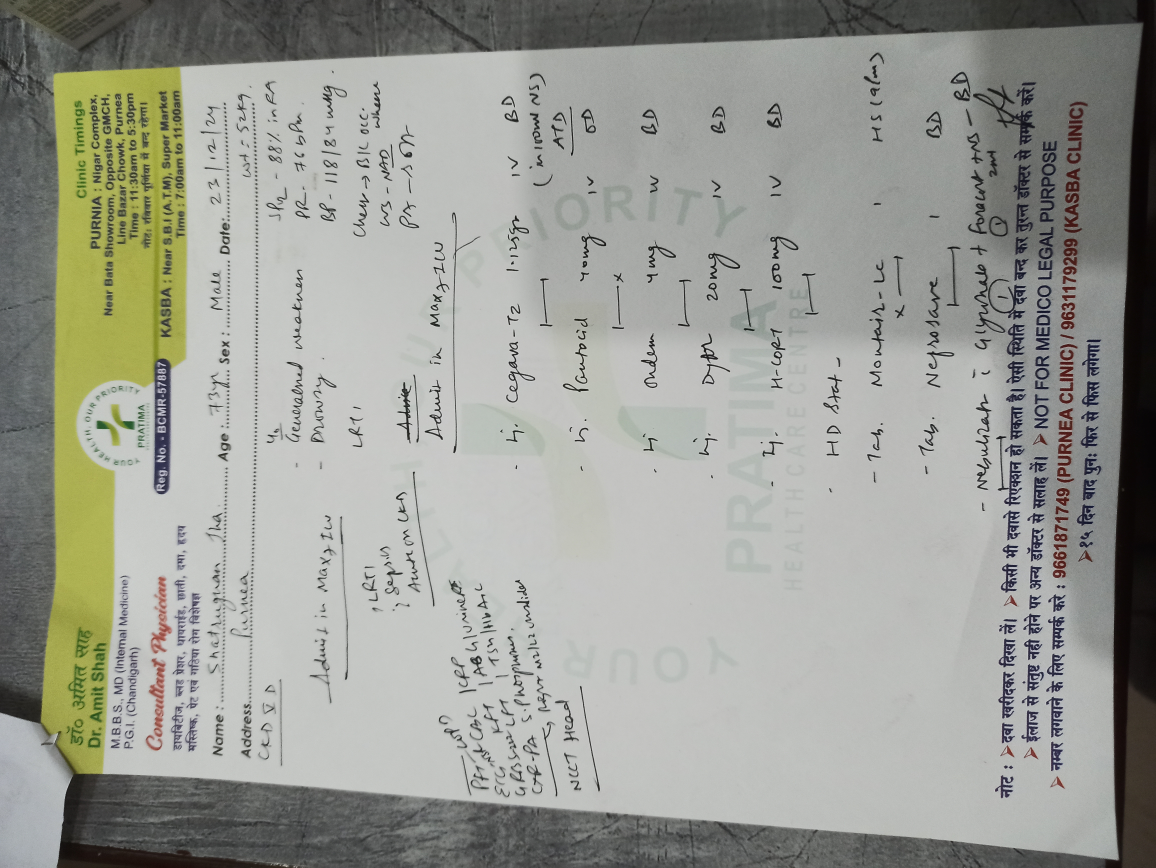 डॉ० अमित साह
Dr. Amit Shah
M.B.B.S., MD (Internal Medicine)
P.G.I. (Chandigarh)
Consultant Physician
डायबिटीज, ब्लड प्रेशर, थायराईड, छाती, दमा, हृदय
मस्तिष्क, पेट एवं गठिया रोग विशेषज्ञ
YOUR HEALTH, OUR PRIORITY
PRATIMA
Reg. No. - BCMR-57887
Clinic Timings
PURNIA : Nigar Complex,
Near Bata Showroom, Opposite GMCH,
Line Bazar Chowk, Purnea
Time : 11:30am to 5:30pm
नोट: रविवार पूर्णिया में बन्द रहेगा।
KASBA : Near S.B.I (A.T.M), Super Market
Time : 7:00am to 11:00am
Name : Shatrughan Jha Age : 73yr Sex : Male Date 23/12/24
Address Purnea Wt = 52kg
CKD V D
- Generalised weakness
- Drowsy
LRTI
SPO2 - 88% in RA
PR - 76 bPm.
BP - 118/84 mmHg
Chest → B/L occ.
CVS - NAD
PA - soft
Admit in Max7 ICU
LRTI
Sepsis
Acute on CKD
Admit in Max7 ICU
CBC | CRP
KFT | TSH | HbA1c
S. Phosphorus
NCCT Head
- Inj. Cegava-TZ 1.125gm IV BD
(in 100ml NS)
ATD
- Inj. Pantocid 40mg IV OD
- Inj Ondem 4mg IV BD
- Inj. Dytor 20mg IV BD
- Inj. H-CORT 100mg IV BD
- HD Stat -
- Tab. Montair-LC 1 HS
- Tab. Nefrosave 1 BD
- Nebulization c Glycohale + Foracort + NS - BD
YOUR HEALTH OUR PRIORITY
PRATIMA
HEALTHCARE CENTRE
नोट : ➤ दवा खरीदकर दिखा लें। ➤ किसी भी दवासे रिएक्शन हो सकता है। ऐसी स्थिति में दवा बन्द कर तुरन्त डॉक्टर से सम्पर्क करें।
➤ ईलाज से संतुष्ट नही होने पर अन्य डॉक्टर से सलाह लें। ➤ NOT FOR MEDICO LEGAL PURPOSE
➤ नम्बर लगवाने के लिए सम्पर्क करे : 9661871749 (PURNEA CLINIC) / 9631179299 (KASBA CLINIC)
➤ १५ दिन बाद पुनः फिर से फिस लगेगा।